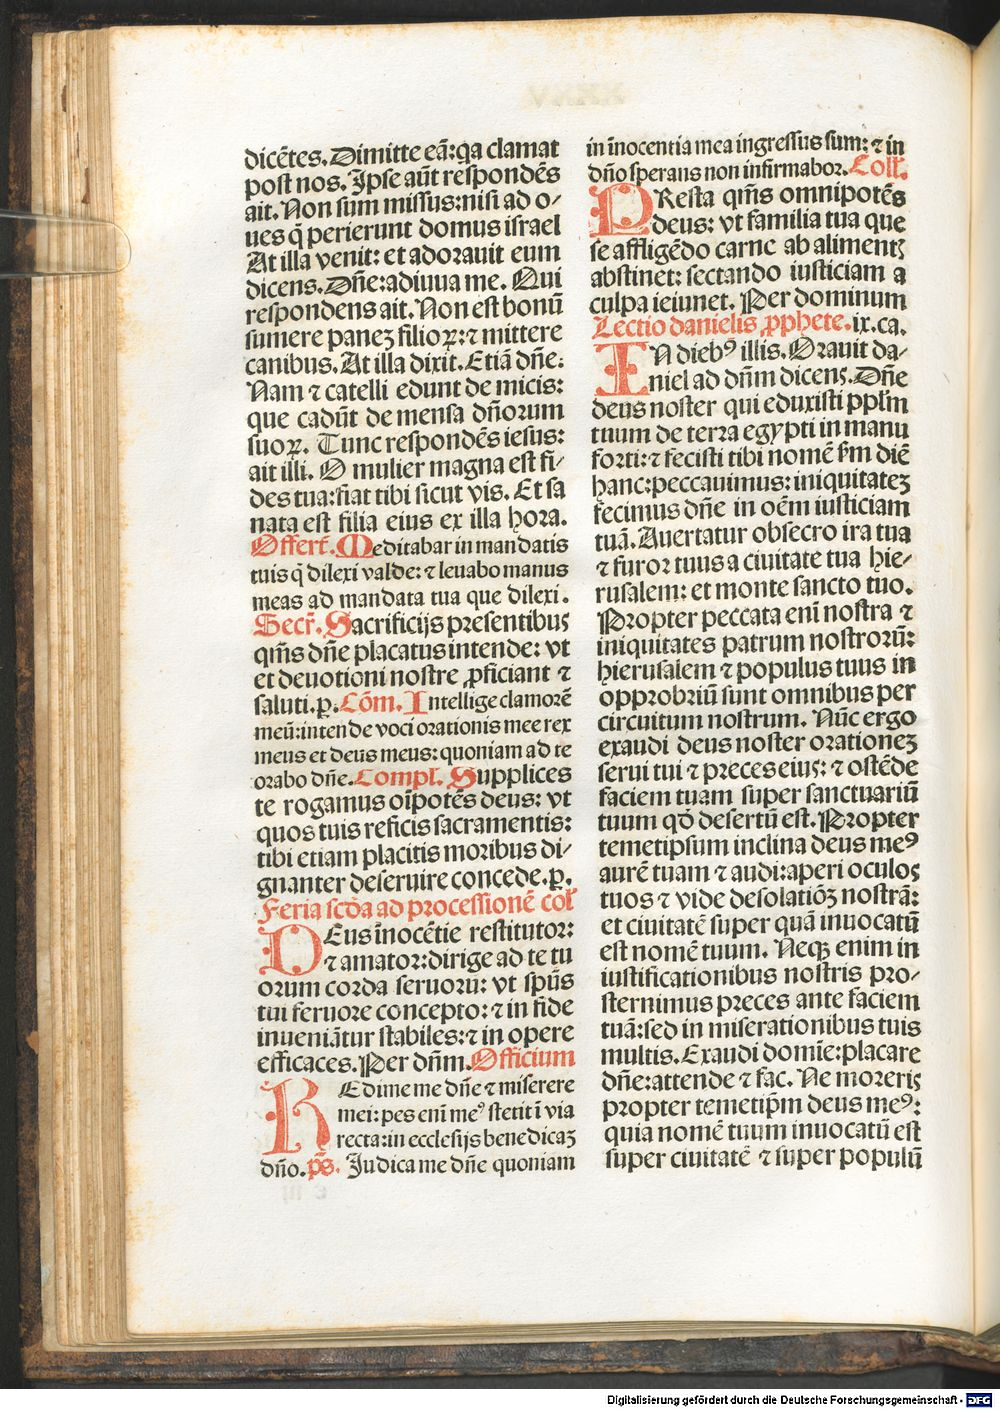 dicētes. Dimitte eā: qa clamat
post nos. Ipse aūt respondēs
ait. Non sum missus: nisi ad o⸗
ues q̄ perierunt domus israel
At illa venit: et adorauit eum
dicens. Dn̄e: adiuua me. Qui
respondens ait. Non est bonū
sumere paneʒ filioꝝ: ⁊ mittere
canibus. At illa dixit. Etiā dn̄e:
Nam ⁊ catelli edunt de micis:
que cadūt de mensa dn̄orum
suoꝝ. Tunc respondēs iesus:
ait illi. O mulier magna est fi⸗
des tua: fiat tibi sicut vis. Et sa
nata est filia eius ex illa hora.
Offert̄. Meditabar in mandatis
tuis q̄ dilexi valde: ⁊ leuabo manus
meas ad mandata tua que dilexi.
Secr̄. Sacrificijs presentibus
qm̄s dn̄e placatus intende: vt
et deuotioni nostre ꝓficiant ⁊
saluti. p̱. Cōm. Intellige clamorē
meū: intende voci orationis mee rex
meus et deus meus: quoniam ad te
orabo dn̄e. Compl. Supplices
te rogamus oīpotēs deus: vt
quos tuis reficis sacramentis:
tibi etiam placitis moribus di⸗
gnanter deseruire concede. p̱.
Feria scd̄a ad processionē coll̄
DEus īnocētie restitutor:
⁊ amator: dirige ad te tu
orum corda seruorū: vt spūs
tui feruore concepto: ⁊ in fide
inueniātur stabiles: ⁊ in opere
efficaces. Per dn̄m. Officium
REdime me dn̄e ⁊ miserere
mei: pes enī meꝰ stetit ī via
recta: in ecclesijs benedicaʒ
dn̄o. p̄s. Iudica me dn̄e quoniam
in īnocentia mea ingressus sum: ⁊ in
dn̄o sperans non infirmabor. Coll̄.
PResta qm̄s omnipotēs
deus: vt familia tua que
se affligēdo carnē ab alimentꝭ
abstinet: sectando iusticiam a
culpa ieiunet. Per dominum
Lectio danielis ꝓphete. ix. ca.
IN diebꝰ illis. Orauit da⸗
niel ad dn̄m dicens. Dn̄e
deus noster qui eduxisti pplm̄
tuum de terra egypti in manu
forti: ⁊ fecisti tibi nomē sm̄ diē
hanc: peccauimus: iniquitateʒ
fecimus dn̄e in oēm iusticiam
tuā. Auertatur obsecro ira tua
⁊ furor tuus a ciuitate tua hie⸗
rusalem: et monte sancto tuo.
Propter peccata enī nostra ⁊
iniquitates patrum nostrorū:
hierusalem ⁊ populus tuus in
opprobriū sunt omnibus per
circuitum nostrum. Nūc ergo
exaudi deus noster orationeʒ
serui tui ⁊ preces eius: ⁊ ostēde
faciem tuam super sanctuariū
tuum qd̄ desertū est. Propter
temetipsum inclina deus meꝰ
aurē tuam ⁊ audi: aperi oculos
tuos ⁊ vide desolatiōʒ nostrā:
et ciuitatē super quā inuocatū
est nomē tuum. Neqꝫ enim in
iustificationibus nostris pro⸗
sternimus preces ante faciem
tuā: sed in miserationibus tuis
multis. Exaudi domīe: placare
dn̄e: attende ⁊ fac. Ne moreris
propter temetip̄m deus meꝰ:
quia nomē tuum inuocatū est
super ciuitatē ⁊ super populū
Digitalisierung gefördert durch die Deutsche Forschungsgemeinschaft - DFG